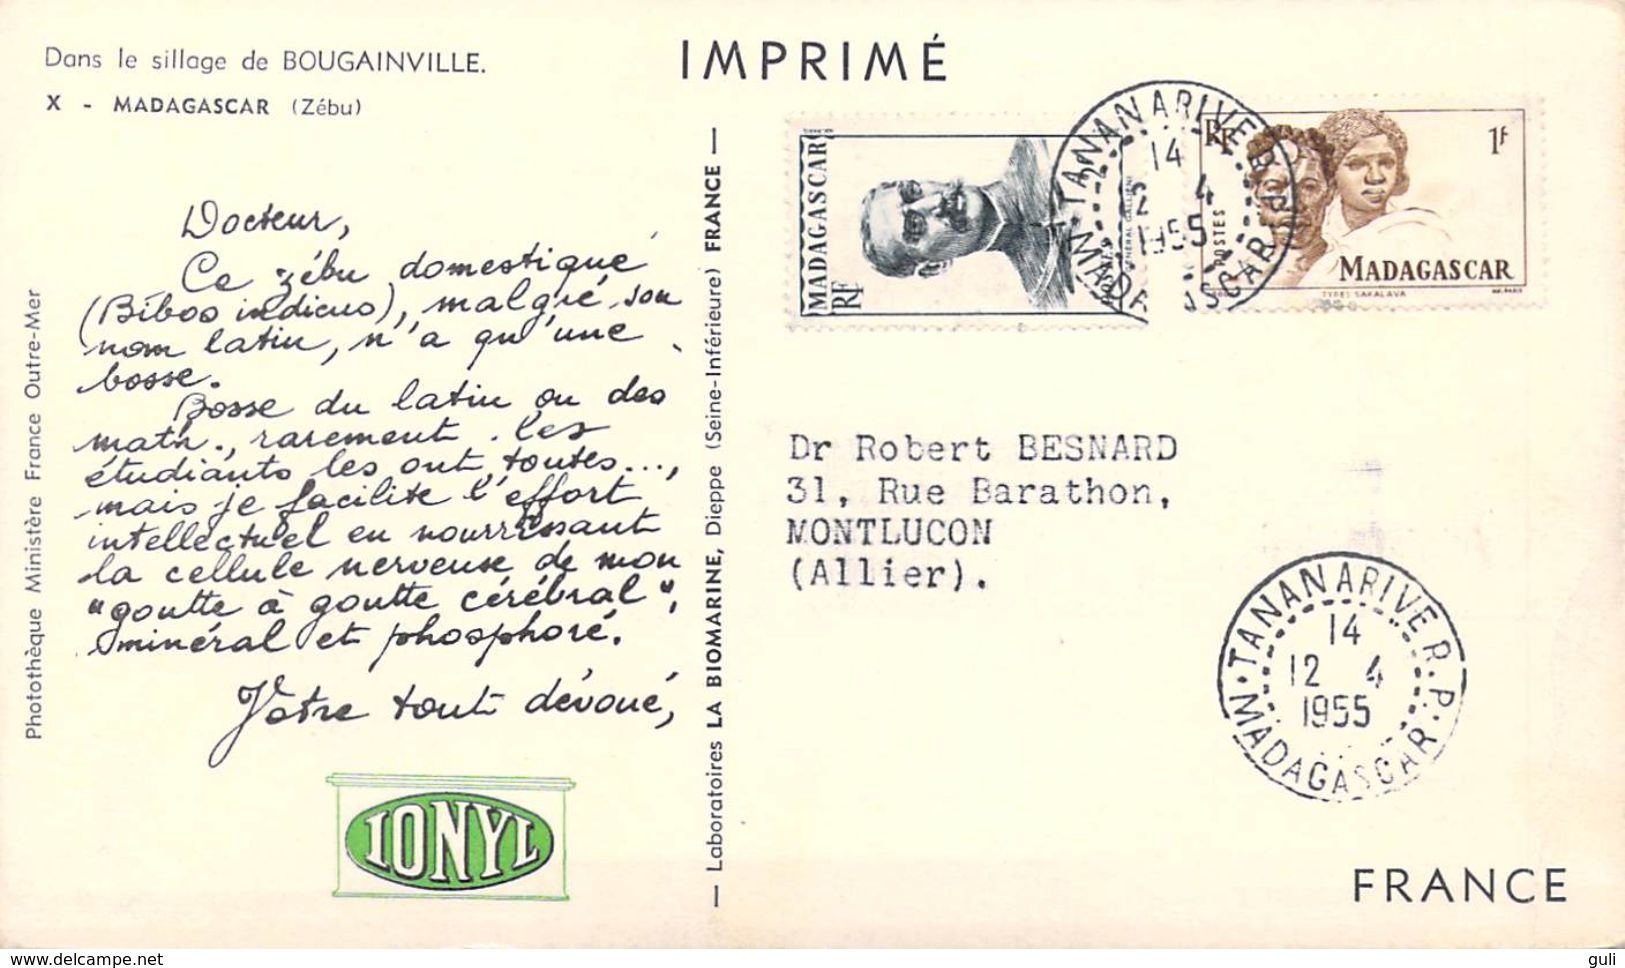 Dans le sillage de BOUGAINVILLE.
X - MADAGASCAR (Zébu)
Docteur,
Ce zébu domestique
(Bibos indicus), malgré son
nom latin, n'a qu'une
bosse.
Bosse du latin ou des
math., rarement les
étudiants les ont toutes...,
mais je facilite l'effort
intellectuel en nourrissant
la cellule nerveuse de mon
"goutte à goutte cérébral",
minéral et phosphoré.
Votre tout dévoué,
IONYL
Photothèque Ministère France Outre-Mer
— Laboratoires LA BIOMARINE, Dieppe (Seine-Inférieure) FRANCE —
IMPRIMÉ
MADAGASCAR
RF
POSTES
GÉNÉRAL GALLIENI
RF
1F
POSTES
MADAGASCAR
TYPES SAKALAVA
TANANARIVE R.P.
14
12 4
1955
MADAGASCAR
Dr Robert BESNARD
31, Rue Barathon,
MONTLUCON
(Allier).
TANANARIVE R.P.
14
12 4
1955
MADAGASCAR
FRANCE
www.delcampe.net
guli